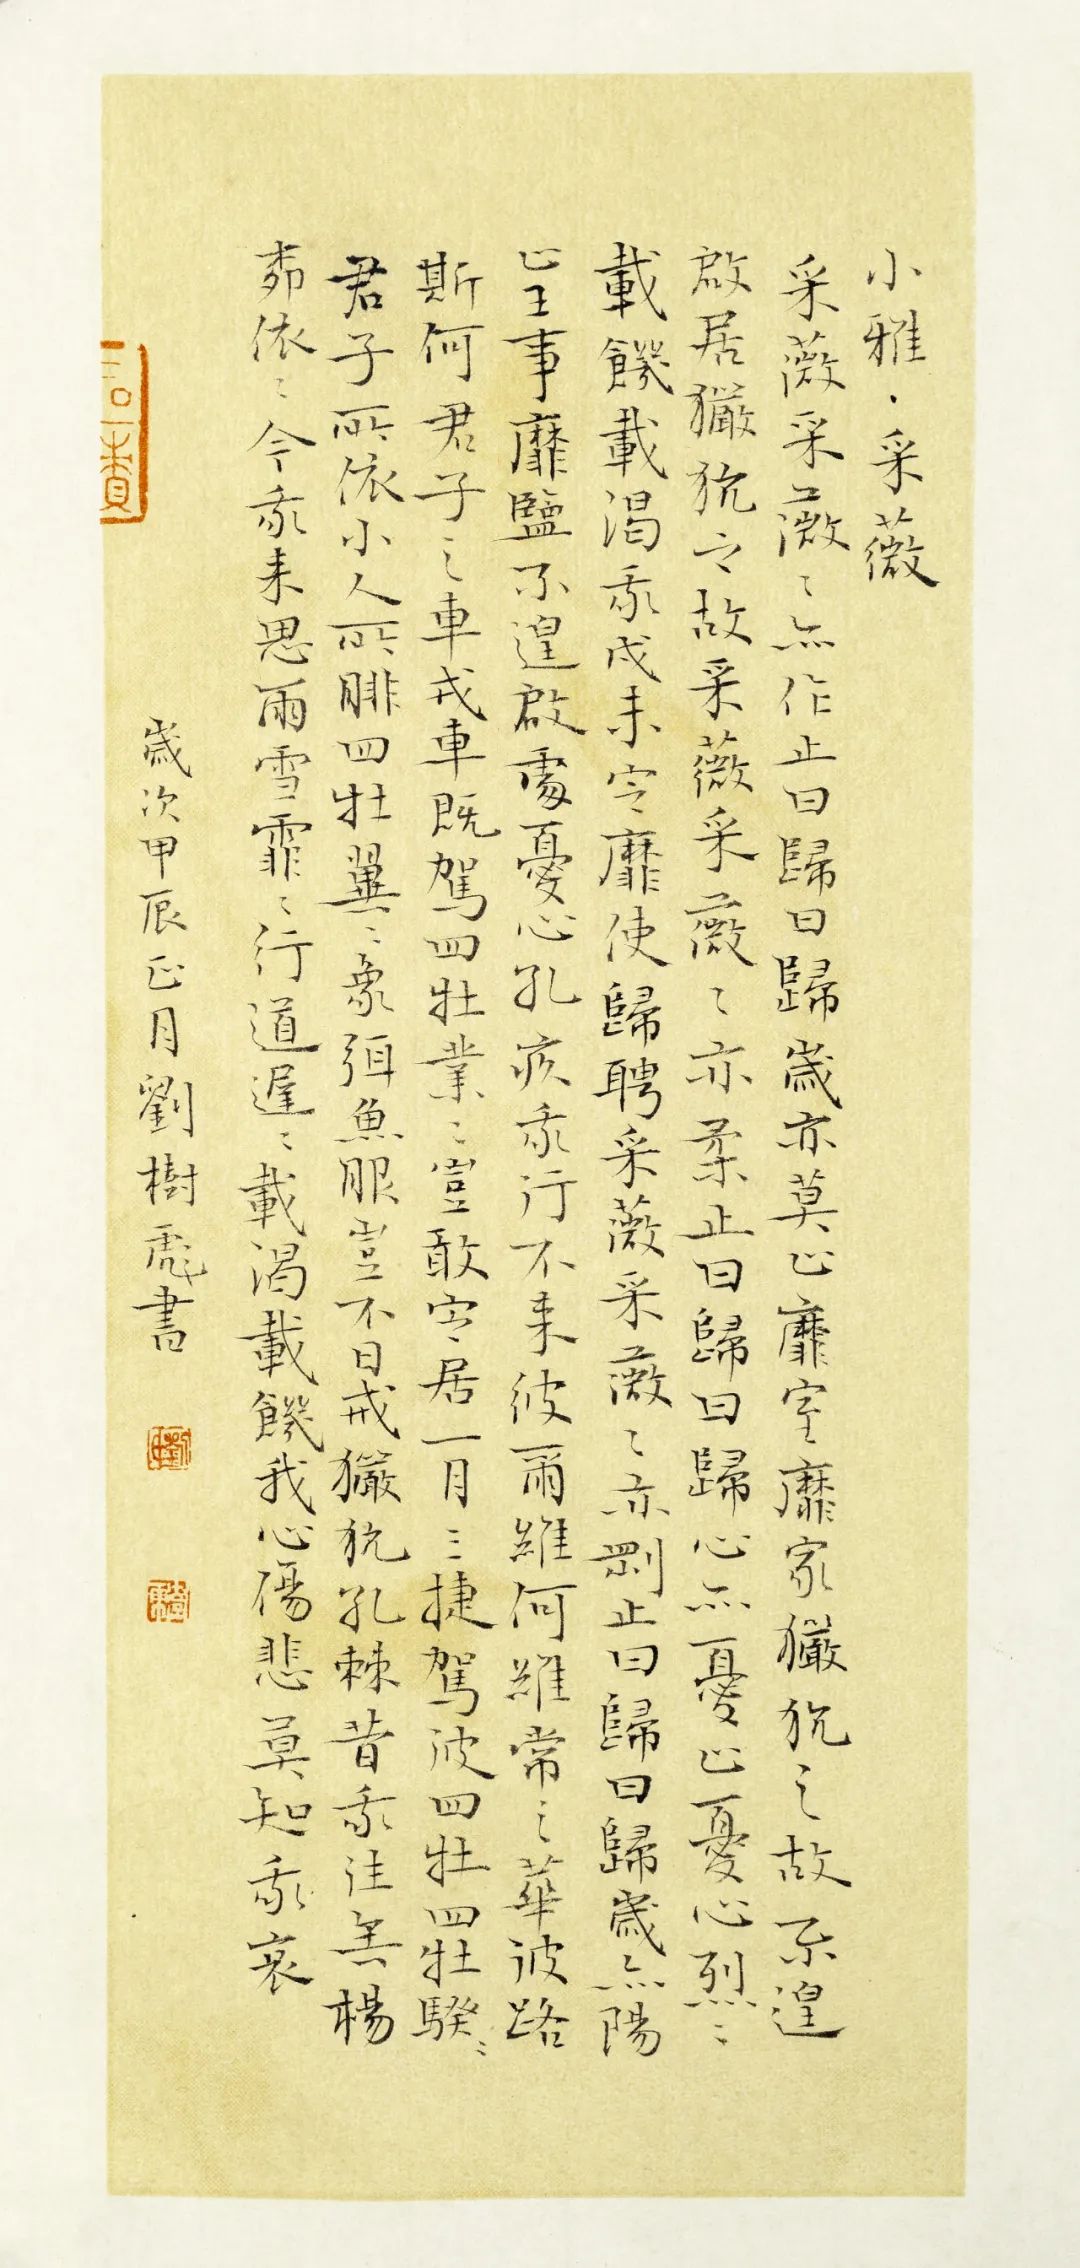 小雅·采薇
采薇采薇〻亦作止曰歸曰歸歲亦莫止靡室靡家玁狁之故不遑
啟居玁狁之故采薇采薇〻亦柔止曰歸曰歸心亦憂止憂心烈〻
載饑載渴我戍未定靡使歸聘采薇采薇〻亦剛止曰歸曰歸歲亦陽
止王事靡盬不遑啟處憂心孔疚我行不來彼爾維何維常之華彼路
斯何君子之車戎車既駕四牡業〻豈敢定居一月三捷駕彼四牡四牡騤〻
君子所依小人所腓四牡翼〻象弭魚服豈不日戒玁狁孔棘昔我往矣楊
柳依〻今我來思雨雪霏〻行道遲〻載渴載饑我心傷悲莫知我哀
歲次甲辰正月劉樹彪書